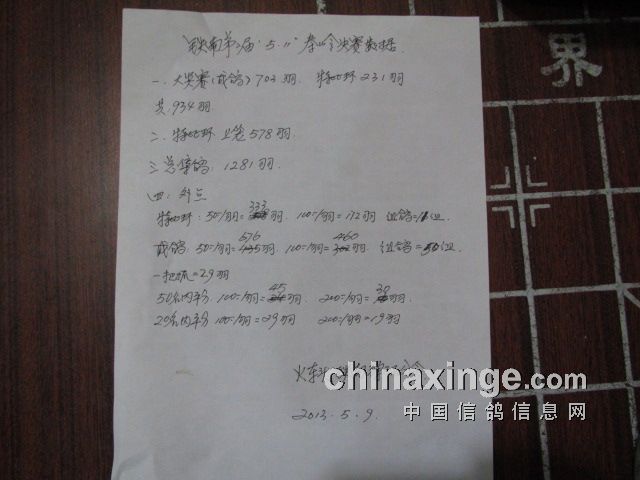 铁南第二届"5.11"泰山会决赛数据
一、大奖赛(成鸽)703羽. 特比环231羽
共934羽
二、特比环上笼578羽.
三总集鸽: 1281羽.
四: 外点
特比环: 50元/羽=333羽. 100元/羽=172羽 组鸽=16组.
成鸽: 50元/羽=576羽. 100元/羽=460羽. 组鸽=50组.
一把抓=29羽
50名内平分 100元/羽=45羽. 200元/羽=30羽.
20名内平分 100元/羽=29羽 200元/羽=19羽
火车头
2013.5.9.
界
chinaxinge.com
中国信鸽信息网